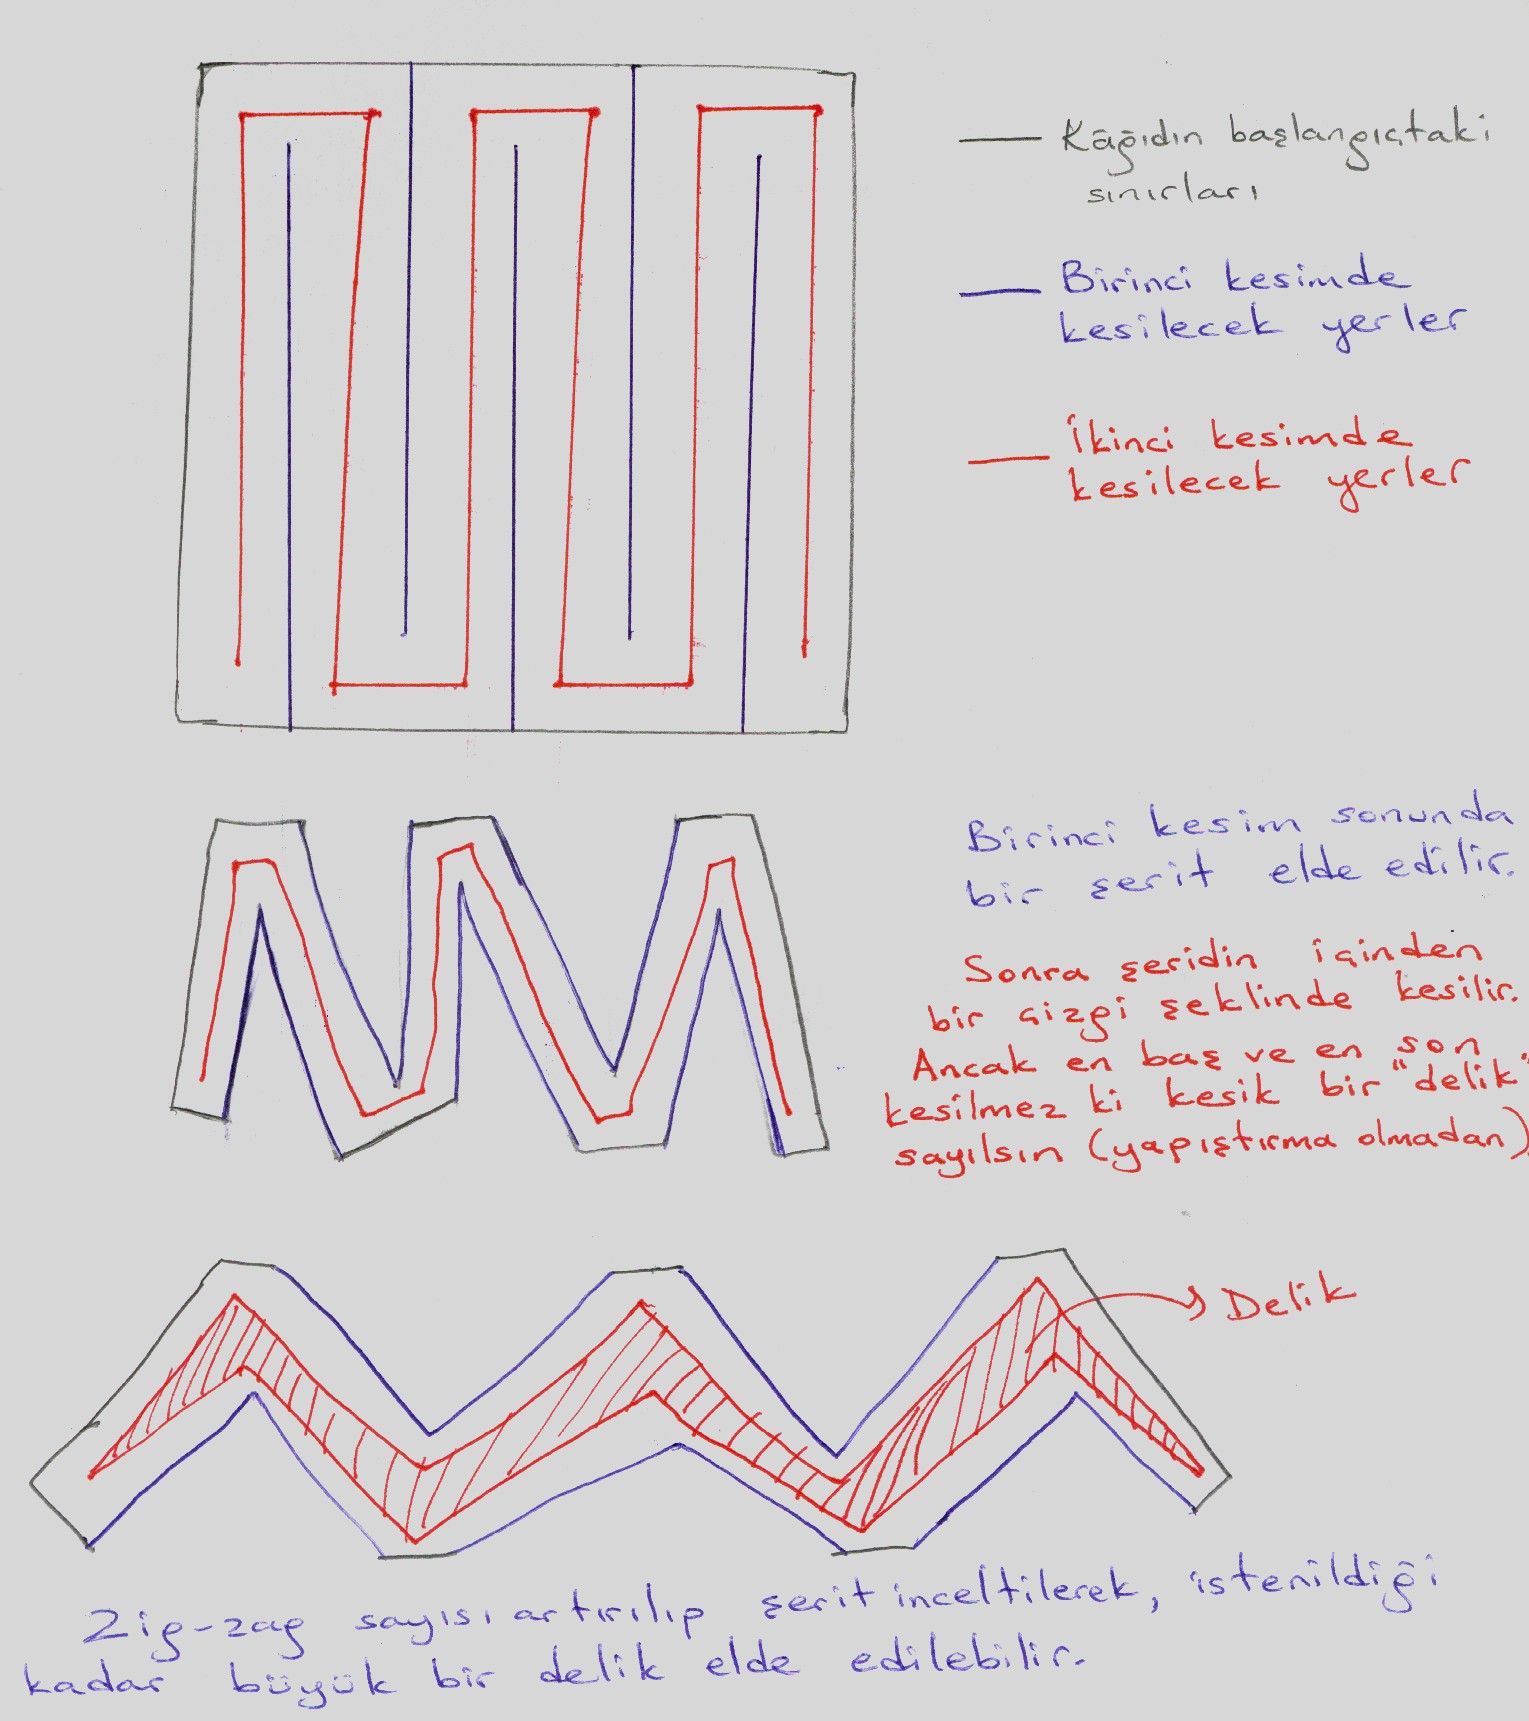 Kâğıdın başlangıçtaki
sınırları
Birinci kesimde
kesilecek yerler
İkinci kesimde
kesilecek yerler
Birinci kesim sonunda
bir şerit elde edilir.
Sonra şeridin içinden
bir çizgi şeklinde kesilir.
Ancak en baş ve en son
kesilmez ki kesik bir "delik"
sayılsın (yapıştırma olmadan)
Delik
Zig-zag sayısı artırılıp şerit inceltilerek, istenildiği
kadar büyük bir delik elde edilebilir.